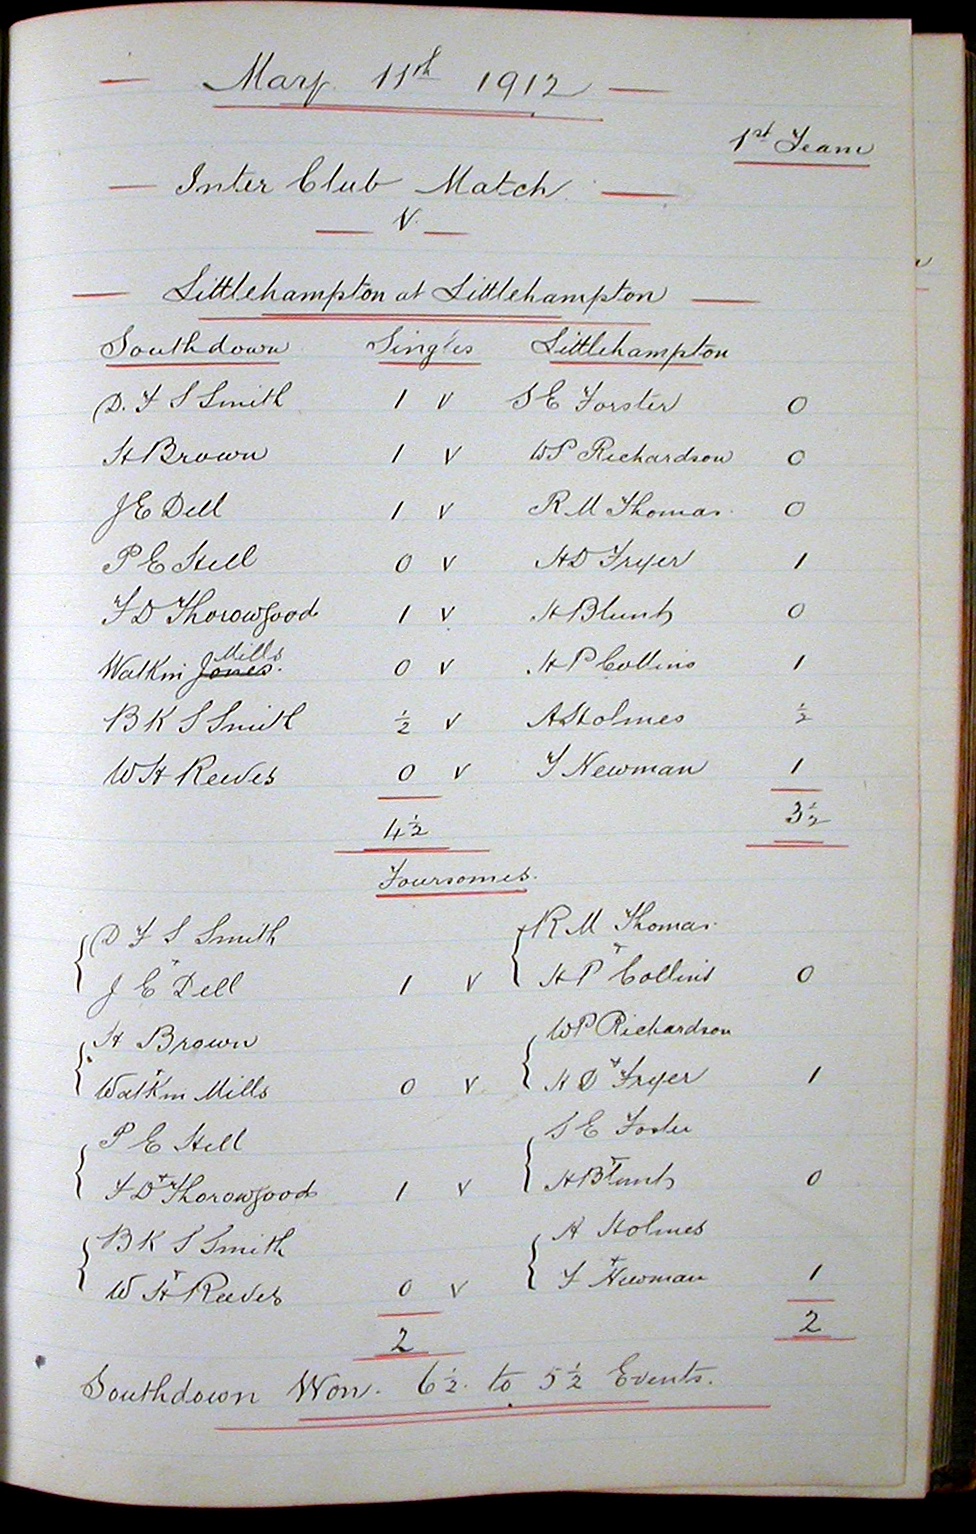 May 11th 1912
1st Team
Inter Club Match
V.
Littlehampton at Littlehampton
Southdown Singles Littlehampton
D. F S Smith 1 V S E Forster 0
H Brown 1 V WP Richardson 0
J E Dell 1 V R M Thomas 0
P E Hill 0 V H D Fryer 1
F D Thorowgood 1 V H Blunt 0
Mills
Watkin Jones 0 V H P Collins 1
B K S Smith ½ V A Holmes ½
W H Reeves 0 V F Newman 1
4½ 3½
Foursomes.
D F S Smith R M Thomas
+ +
J E Dell 1 V H P Collins 0
H Brown WP Richardson
+ +
Watkin Mills 0 V H D Fryer 1
P E Hill S E Foster
+ +
F D Thorowgood 1 V H Blunt 0
B K S Smith A Holmes
+ +
W H Reeves 0 V F Newman 1
2 2
Southdown Won. 6½ to 5½ Events.